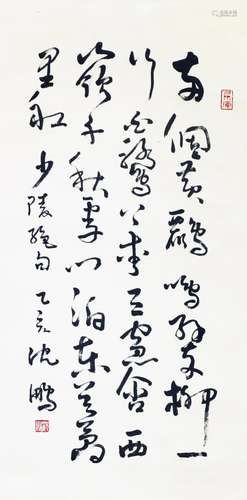 两個黄鸝鳴翠柳一
行白鷺上青天窗含西
嶺千秋雪門泊東吴萬
里船 少陵絶句 乙亥沈鵬